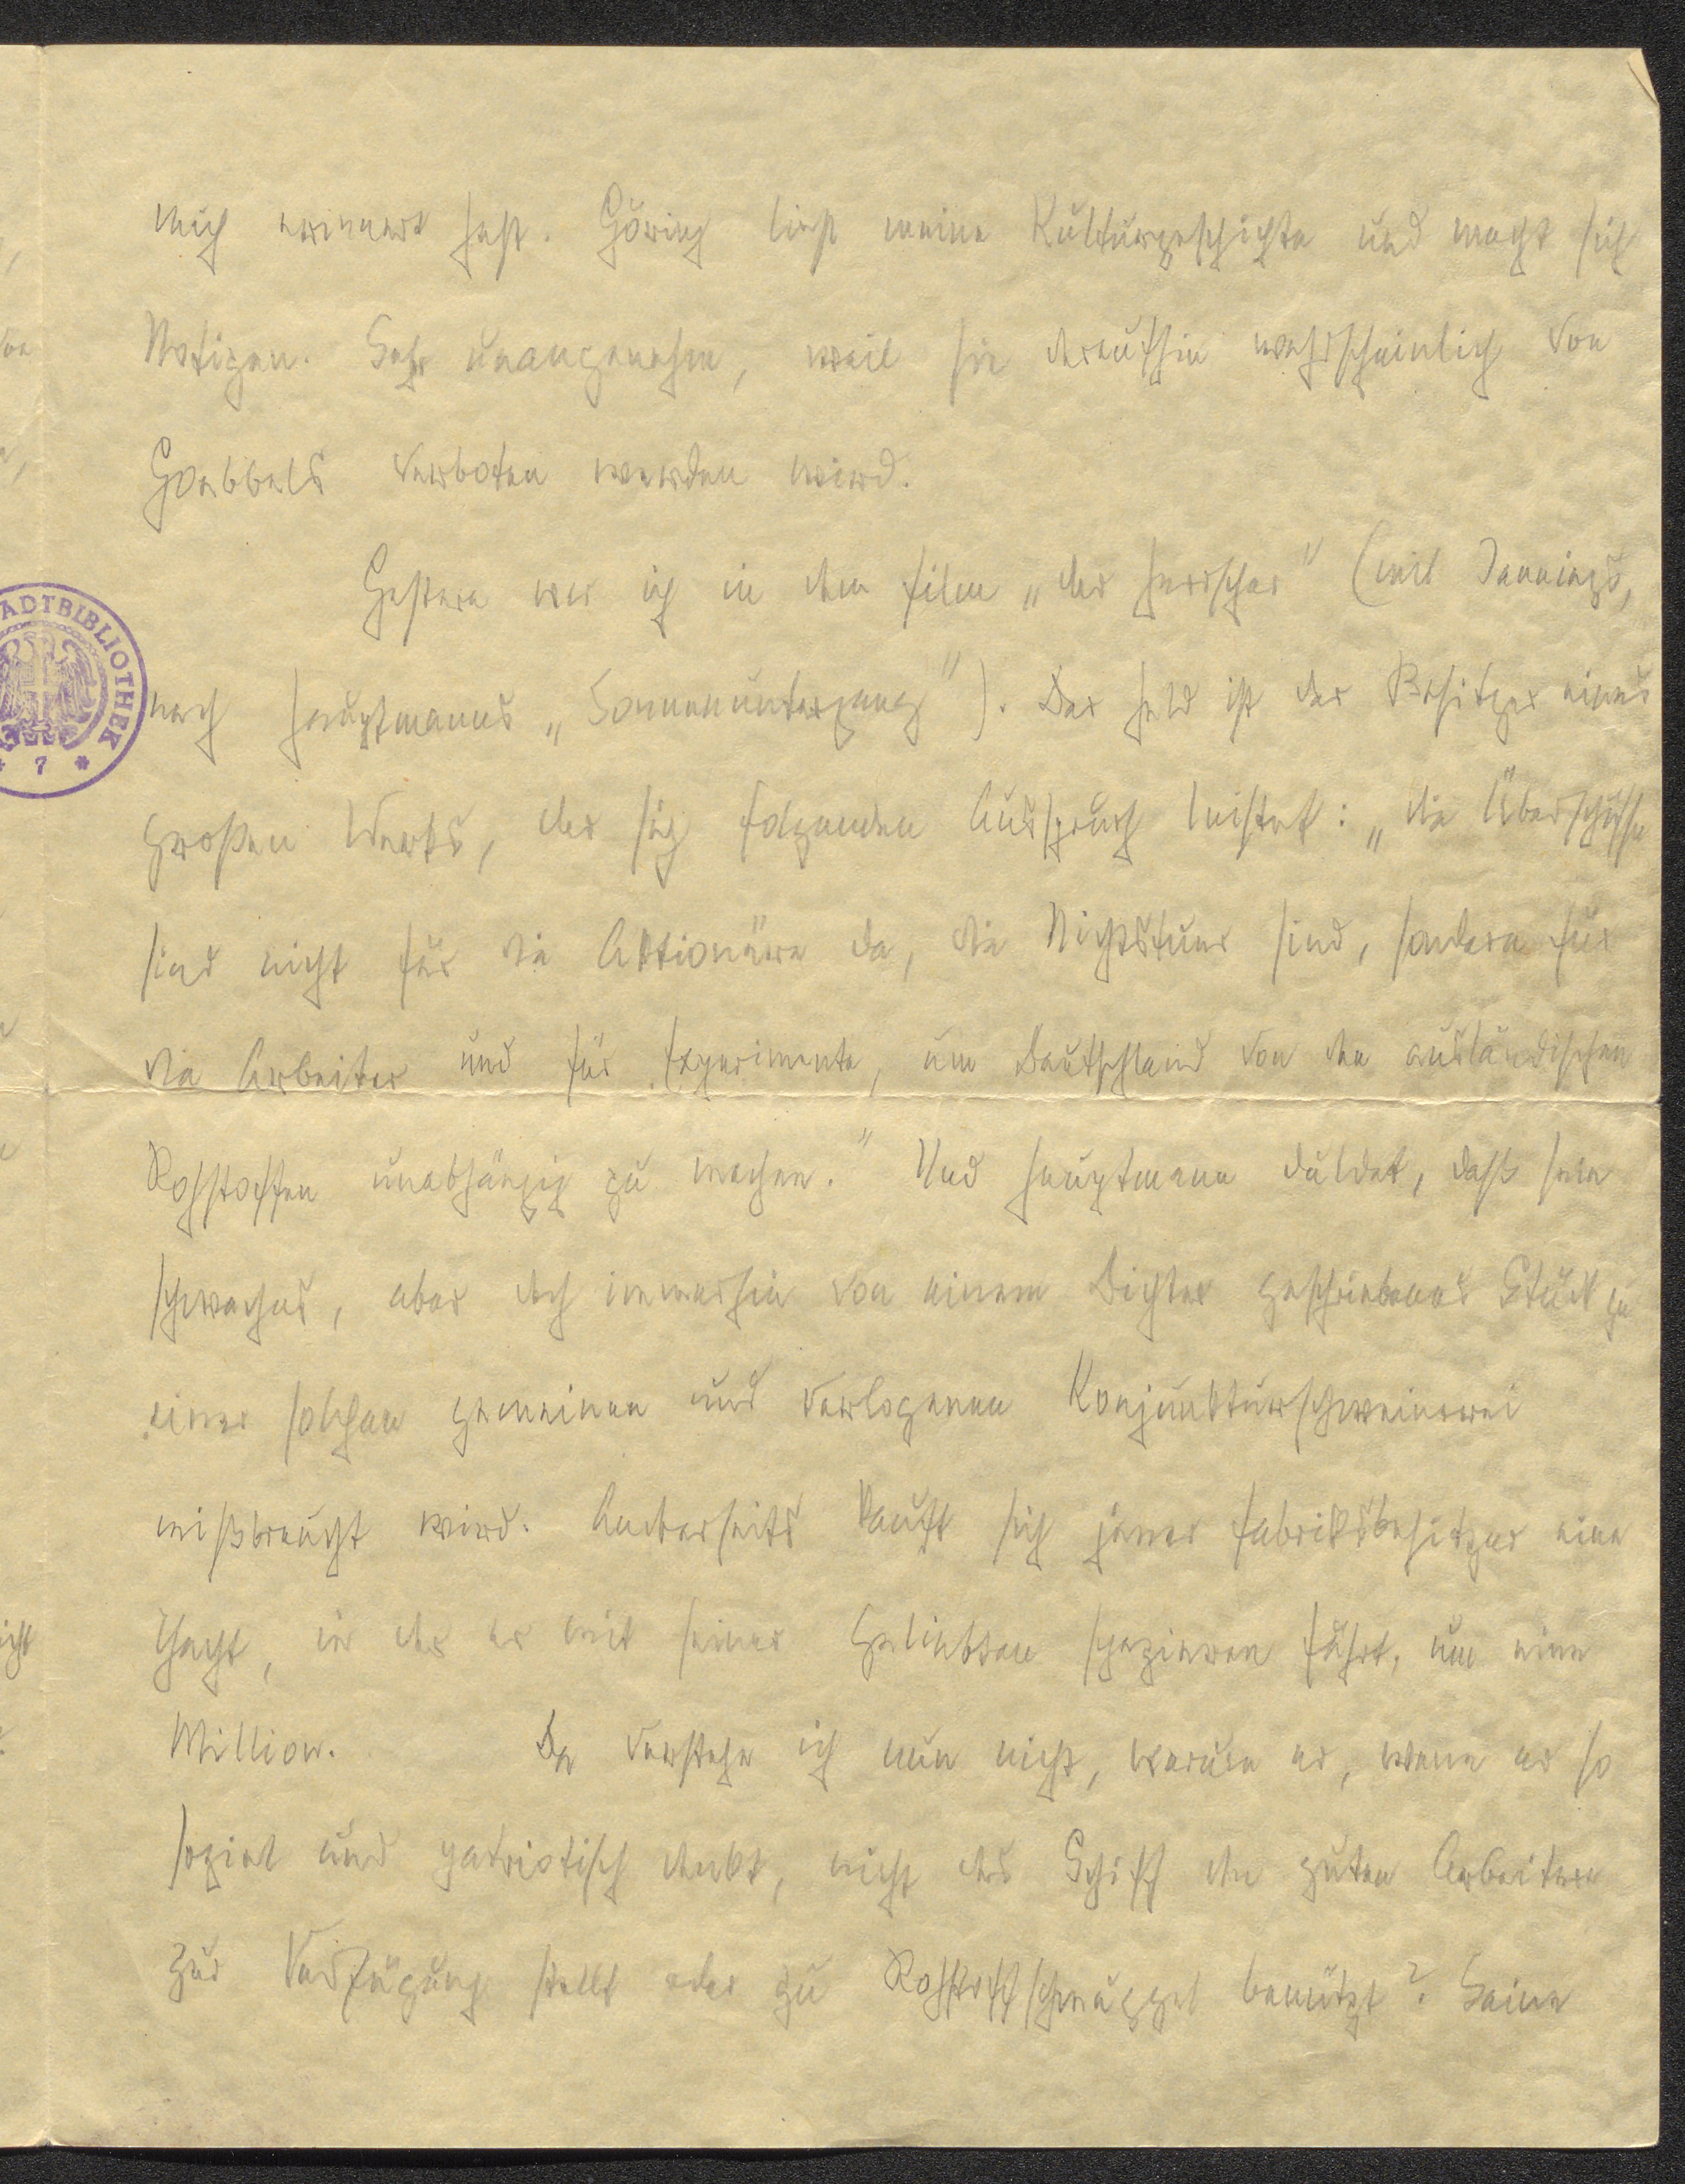 mich erinnert hast. Göring liest meine Kulturgeschichte und macht sich
Notizen. Sehr unangenehm, weil sie daraufhin wahrscheinlich von
Goebbels verboten werden wird.
Gestern war ich in dem Film „der Herrscher" (mit Jannings,
nach Hauptmanns „Sonnenuntergang"). Der Held ist der Besitzer eines
großen Werks, der sich folgenden Ausspruch leistet: „die Überschüsse
sind nicht für die Aktionäre da, die Nichtstuer sind, sondern für
die Arbeiter und für Experimente, um Deutschland von den ausländischen
Rohstoffen unabhängig zu machen." Und Hauptmann duldet, daß sein
schwaches, aber doch immerhin von einem Dichter geschriebenes Stück zu
einer solchen gemeinen und verlogenen Konjunkturschweinerei
mißbraucht wird. Anderseits kauft sich jener Fabriksbesitzer eine
Yacht, in der er mit seiner Geliebten spazieren fährt, um eine
Million. Da verstehe ich nun nicht, warum er, wenn er so
sozial und patriotisch denkt, nicht das Schiff den guten Arbeitern
zur Verfügung stellt oder zu Rohstoffschmuggel benützt? Seine
STADTBIBLIOTHEK
* 7 *